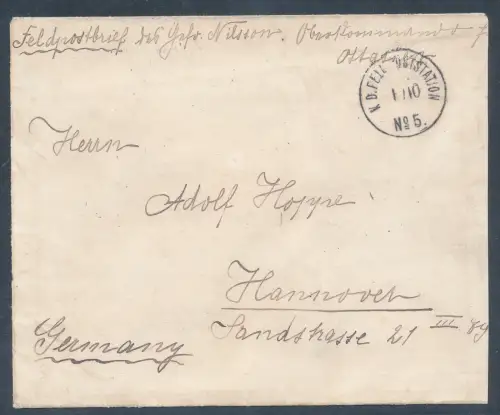 Feldpostbrief des Gefr. Nilsson. Oberkommando d
K. D. FELD POSTSTATION
1/10
No 5.
Herrn
Adolf Hoppe
Hannover
Sandstrasse 21 III
Germany